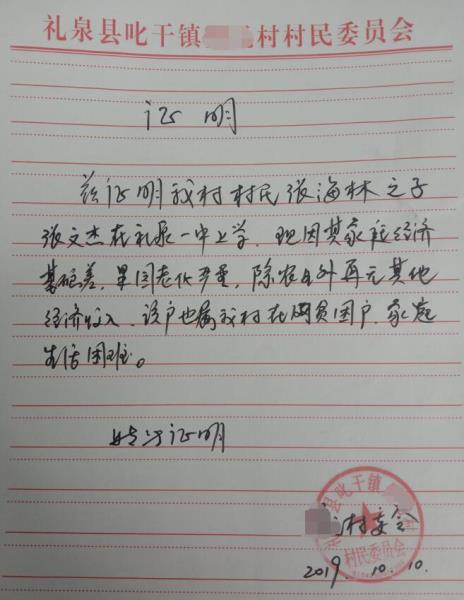 礼泉县叱干镇村村民委员会
证 明
兹证明我村村民张海林之子
张文杰在礼泉一中上学．现因其家庭经济
基础差，果园老化严重，除农业外再无其他
经济收入．该户也属我村在网贫困户．家庭
生活困难。
特此证明
村委会
礼泉县叱干镇
村民委员会
2019．10．10．